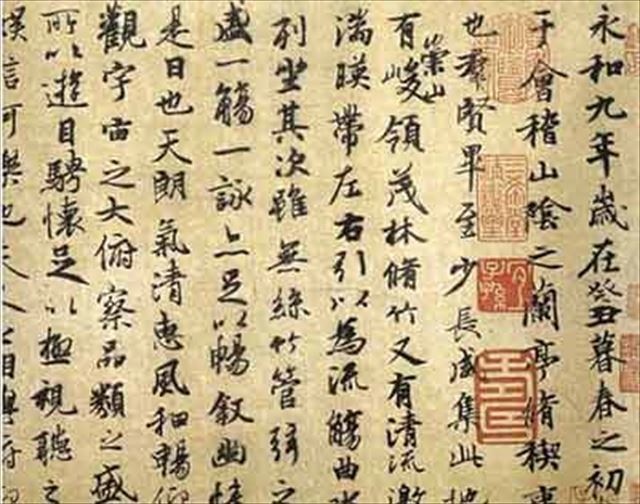 永和九年歲在癸丑暮春之初
于會稽山陰之蘭亭脩稧事
也羣賢畢至少長咸集此地
有崇山峻領茂林脩竹又有清流激
湍暎帶左右引以為流觴曲水
列坐其次雖無絲竹管弦之
盛一觴一詠亦足以暢敘幽情
是日也天朗氣清惠風和暢仰
觀宇宙之大俯察品類之盛
所以遊目騁懷足以極視聽之
娛信可樂也夫人之相與俯